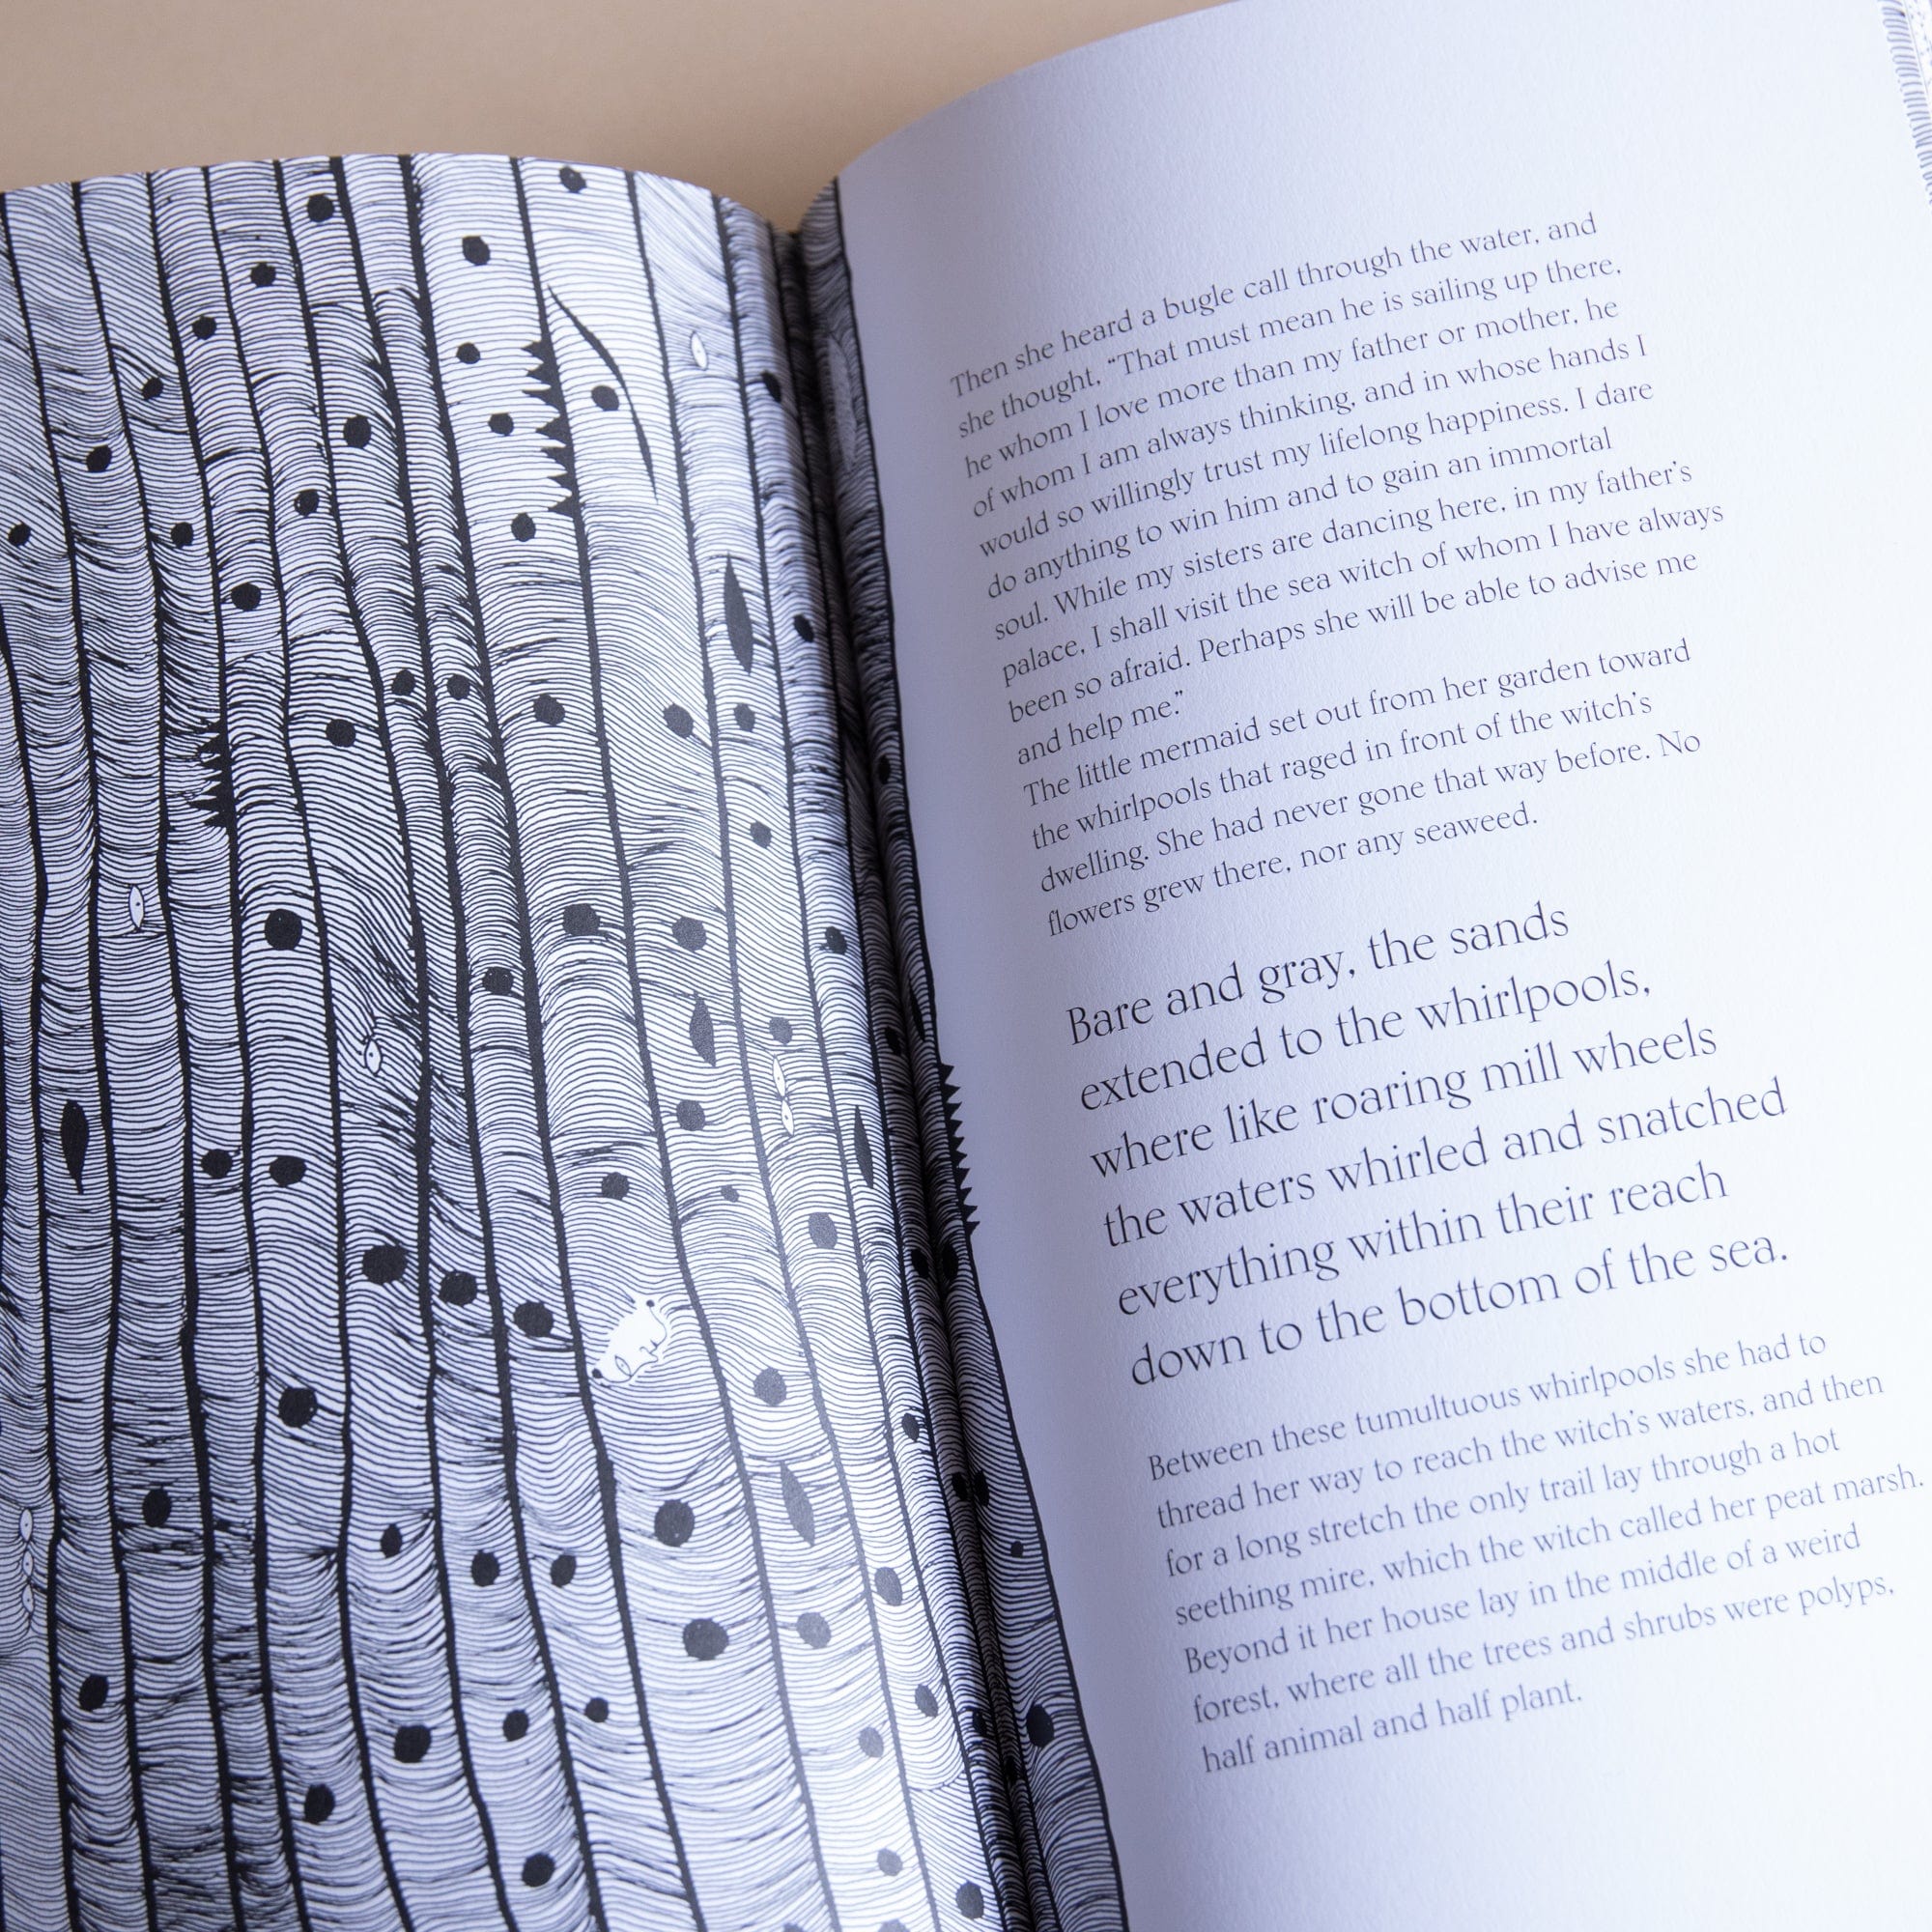 Then she heard a bugle call through the water, and
she thought, “That must mean he is sailing up there,
he whom I love more than my father or mother, he
of whom I am always thinking, and in whose hands I
would so willingly trust my lifelong happiness. I dare
do anything to win him and to gain an immortal
soul. While my sisters are dancing here, in my father’s
palace, I shall visit the sea witch of whom I have always
been so afraid. Perhaps she will be able to advise me
and help me.”
The little mermaid set out from her garden toward
the whirlpools that raged in front of the witch’s
dwelling. She had never gone that way before. No
flowers grew there, nor any seaweed.
Bare and gray, the sands
extended to the whirlpools,
where like roaring mill wheels
the waters whirled and snatched
everything within their reach
down to the bottom of the sea.
Between these tumultuous whirlpools she had to
thread her way to reach the witch’s waters, and then
for a long stretch the only trail lay through a hot
seething mire, which the witch called her peat marsh.
Beyond it her house lay in the middle of a weird
forest, where all the trees and shrubs were polyps,
half animal and half plant.